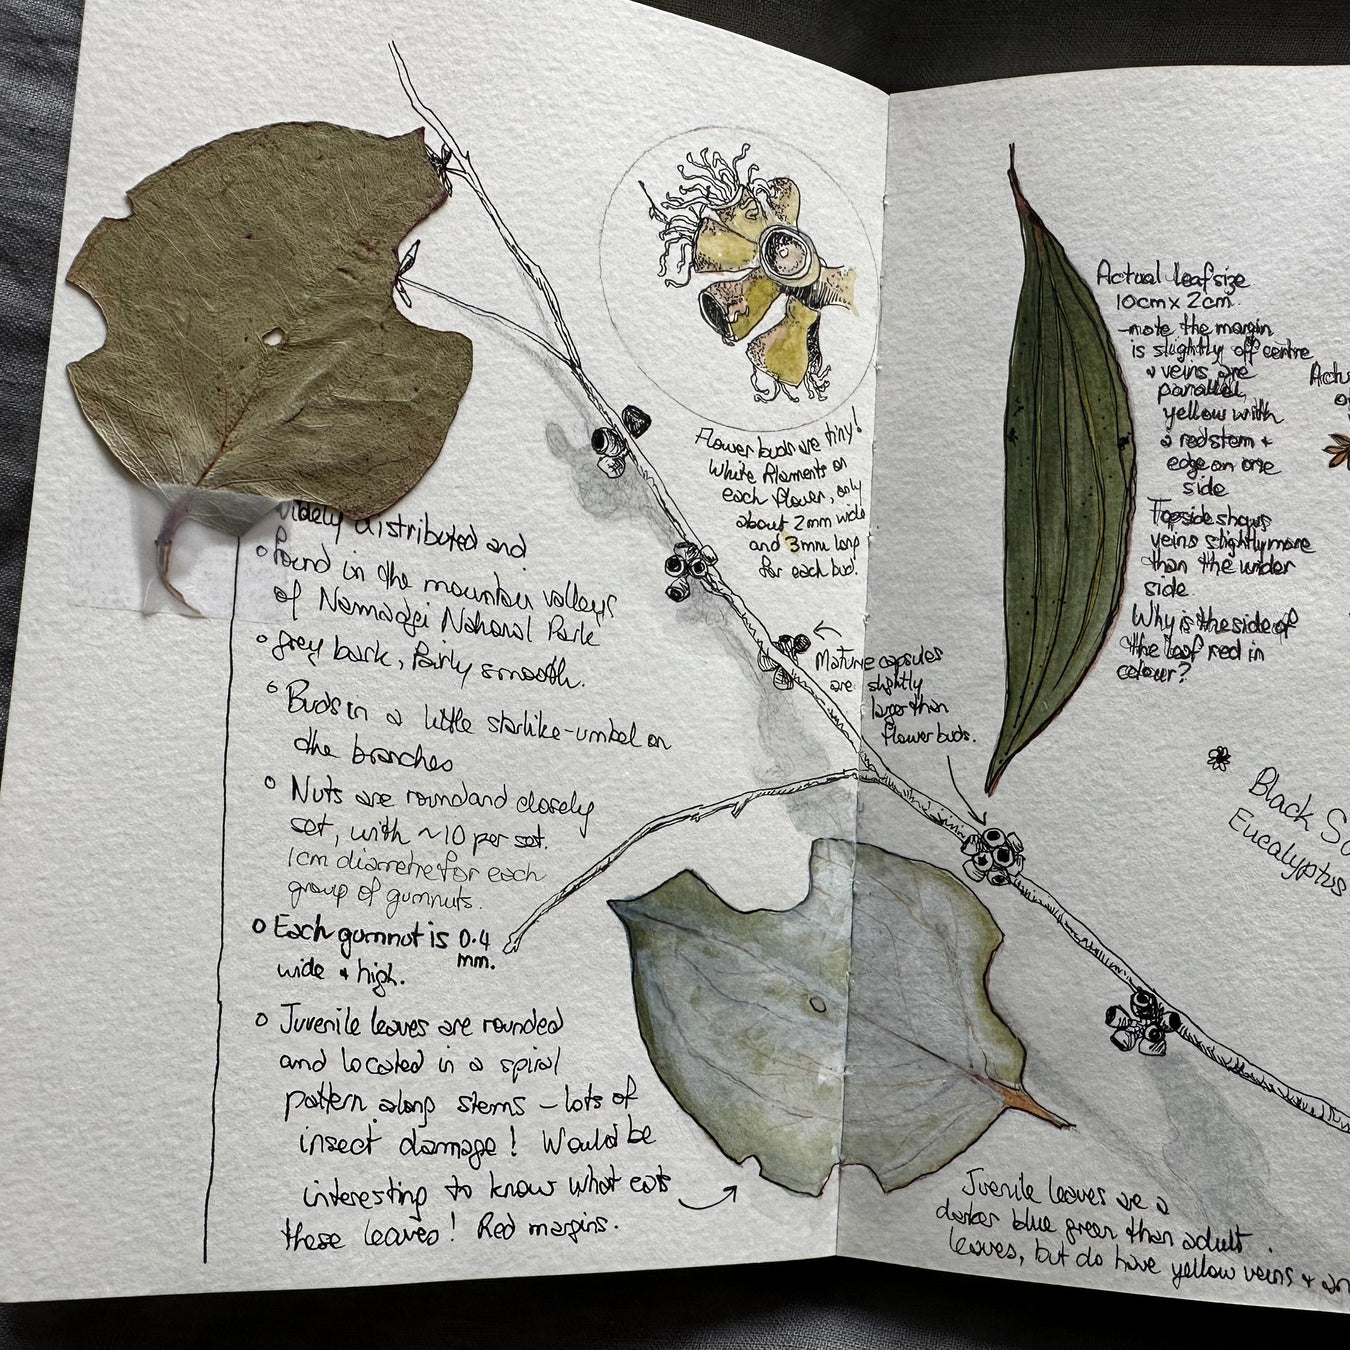 Widely distributed and
found in the mountain valleys
of Namadgi National Park
Grey bark, fairly smooth.
Buds in a little starlike-umbel on
the branches
Nuts are round and closely
set, with ~10 per set.
1cm diametre for each
group of gumnuts.
Each gumnut is 0.4
mm.
wide & high.
Juvenile leaves are rounded
and located in a spiral
pattern along stems - lots of
insect damage! Would be
interesting to know what eats
these leaves! Red margins.
Flower buds are tiny!
White filaments on
each flower, only
about 2mm wide
and 3mm long
for each bud.
Mature capsules
are slightly
larger than
flower buds.
Actual leaf size
10cm x 2cm
-note the margin
is slightly off centre
& veins are
parallel,
yellow with
a red stem +
edge on one
side
Topside shows
veins slightly more
than the under
side.
Why is the side of
the leaf red in
colour?
Actu
Black S
Eucalyptus
Juvenile leaves are a
darker blue green than adult
leaves, but do have yellow veins +